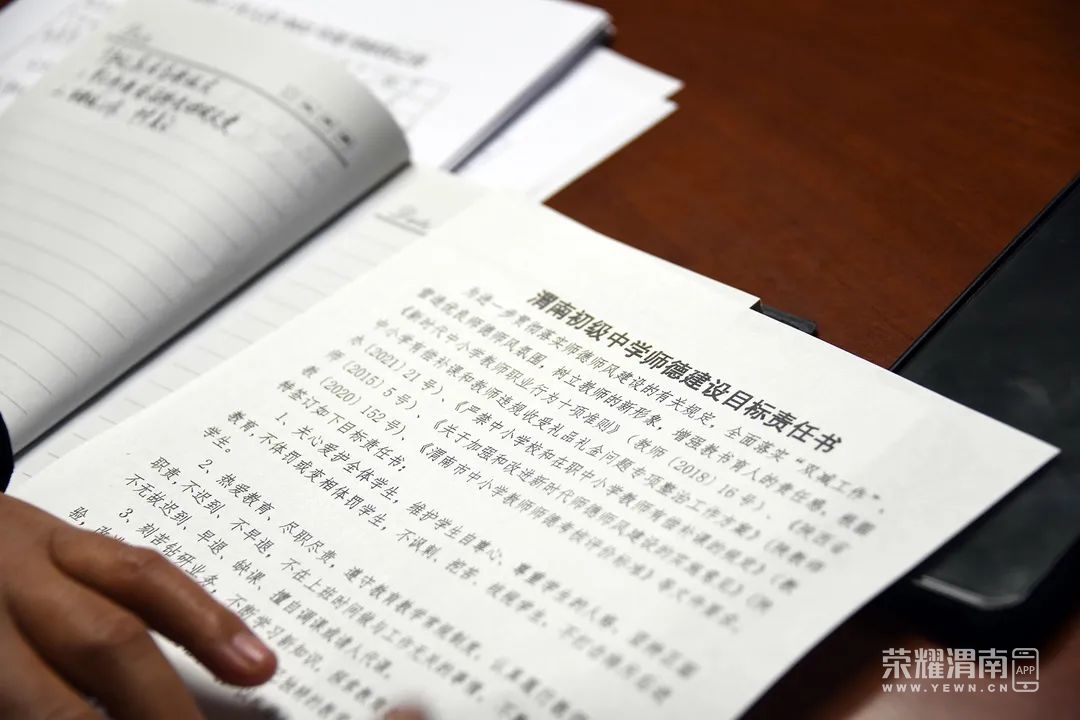 渭南初级中学师德建设目标责任书
为进一步贯彻落实师德师风建设的有关规定,全面落实“双减工作”,
营造优良师德师风氛围,树立教师的新形象,增强教书育人的责任感,根据
《新时代中小学教师职业行为十项准则》(教师〔2018〕16号)、《陕西省
中小学有偿补课和教师违规收受礼品礼金问题专项整治工作方案》(陕教师
办〔2021〕21号)、《严禁中小学校和在职中小学教师有偿补课的规定》(教
师〔2015〕5号)、《关于加强和改进新时代师德师风建设的实施意见》(陕
教〔2020〕152号)、《渭南市中小学教师师德考核评价标准》等文件要求,
特签订如下目标责任书:
1、关心爱护全体学生,维护学生自尊心,尊重学生的人格,坚持正面
教育,不体罚或变相体罚学生,不讽刺、挖苦、歧视学生,不
学生。
2、热爱教育、尽职尽责,遵守教育教学常规制度,认真履行教
职责,不迟到、不早退,不在上班时间做与工作无关的事情,
不无故迟到、早退、缺课、擅自调课或请人代课。
3、刻苦钻研业务,不断学习新知识,探索教育
验,
荣耀渭南 APP
WWW.YEWN.CN